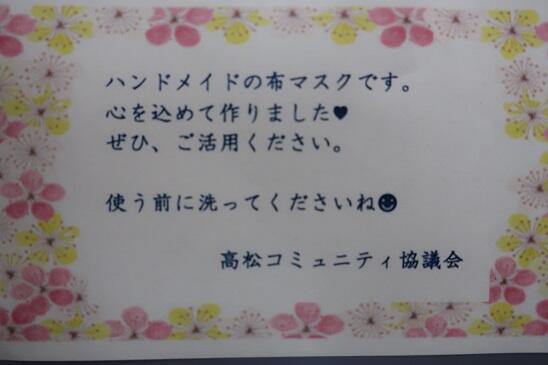 ハンドメイドの布マスクです。
心を込めて作りました♥
ぜひ、ご活用ください。
使う前に洗ってくださいね☻
高松コミュニティ協議会